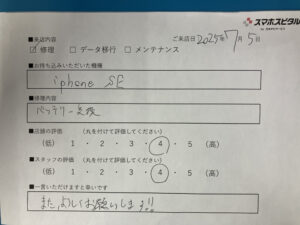 スマホスピタル
■来店内容 ご来店日 2025年7月5日
☑ 修理 □ データ移行 □ メンテナンス
■お持ち込みいただいた機種
iphone SE
■修理内容
バッテリー交換
■店舗の評価 (丸を付けて評価してください)
(低) 1 ・ 2 ・ 3 ・ 4 ・ 5 (高)
■スタッフの評価 (丸を付けて評価してください)
(低) 1 ・ 2 ・ 3 ・ 4 ・ 5 (高)
■一言いただけますと幸いです
また、よろしくお願いします!!